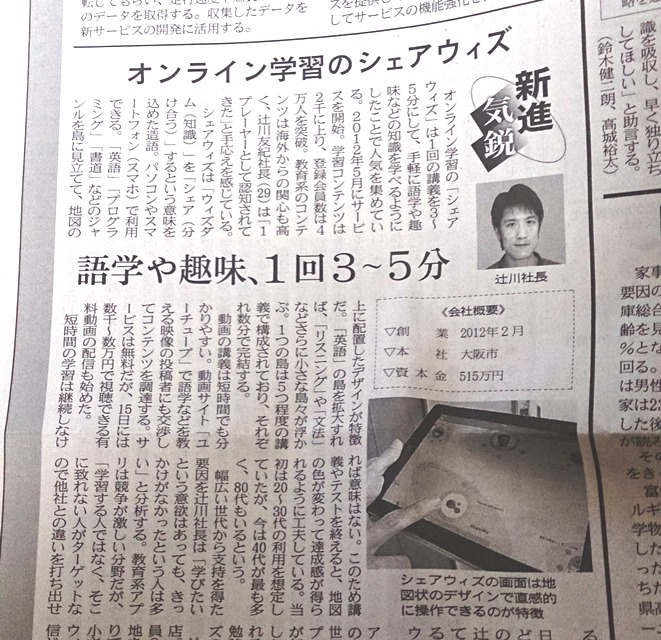 のデータを取得する。収集したデータを
新サービスの開発に活用する。
してサービスの機能強化を
識を吸収し、早く独り立ち
してほしい」と助言する。
（鈴木健二朗、高城裕太）
オンライン学習のシェアウィズ
新進
気鋭
オンライン学習の「シェア
ウィズ」は1回の講義を3～
5分にして、手軽に語学や趣
味などの知識を学べるように
したことで人気を集めてい
る。2012年5月にサービ
スを開始。学習コンテンツは
2千に上り、登録会員数は4
万人を突破。教育系のコンテ
ンツは海外からの関心も高
く、辻川友紀社長(29)は「1
プレーヤーとして認知されて
きた」と手応えを感じている。
シェアウィズは「ウィズダ
ム（知識）」を「シェア（分
け合う）」するという意味を
込めた造語。パソコンやスマ
ートフォン（スマホ）で利用
できる。「英語」「プログラ
ミング」「書道」などのジャ
ンルを島に見立てて、地図の
辻川社長
語学や趣味、1回3～5分
《会社概要》
▽創業 2012年2月
▽本社 大阪市
▽資本金 515万円
上に配置したデザインが特徴
だ。「英語」の島を拡大すれ
ば、「リスニング」や「文法」
などさらに小さな島々が浮か
ぶ。1つの島は5つ程度の講
義で構成されており、それぞ
れ数分で完結する。
動画の講義は短時間でも分
かりやすい。動画サイト「ユ
ーチューブ」で語学などを教
える映像の投稿者にも交渉し
てコンテンツを調達する。サ
ービスは無料だが、15日には
数千～数万円で視聴できる有
料動画の配信も始めた。
短時間の学習は継続しなけ
れば意味はない。このため講
義やテストを終えると、地図
の色が変わって達成感が得ら
れるように工夫している。当
初は20～30代の利用を想定し
ていたが、今は40代が最も多
く、80代もいるという。
幅広い世代から支持を得た
要因を辻川社長は「学びたい
という意欲はあっても、きっ
かけがなかったという人は多
い」と分析する。教育系アプ
リは競争が激しい分野だが、
「学習する人ではなく、そこ
に至れない人がターゲットな
ので他社との違いを打ち出せ
シェアウィズの画面は地
図状のデザインで直感的
に操作できるのが特徴